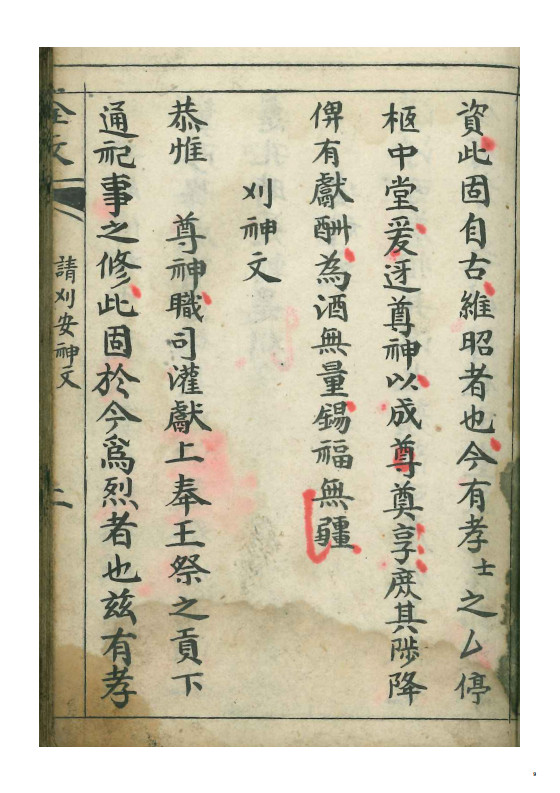 資此固自古維昭者也今有孝士之厶停
柩中堂爰迓尊神以成尊奠享庶其陟降
俾有獻酬為酒無量錫福無疆
刈神文
恭惟 尊神職司灌獻上奉王祭之貢下
通祀事之修此固於今為烈者也茲有孝
全文
請刈安神文
二